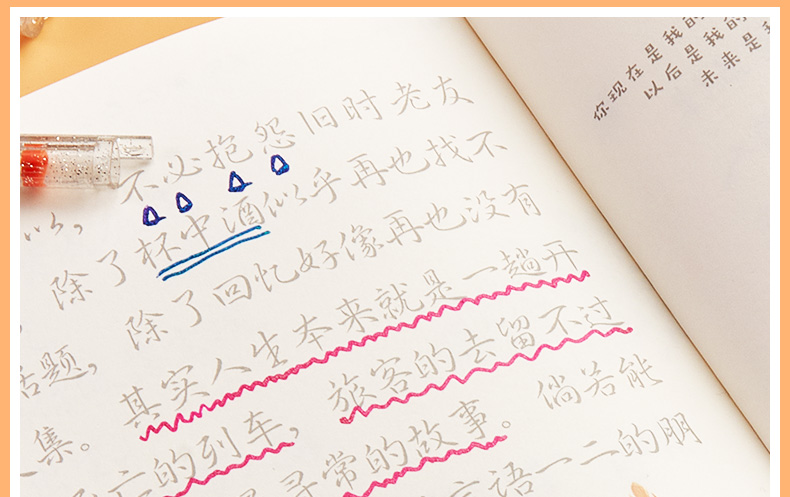 以，不必抱怨旧时老友
除了杯中酒似乎再也找不
话题，除了回忆好像再也没有
集。其实人生本来就是一趟开
的列车，旅客的去留不过
寻常的故事。倘若能
言语一二的朋
你现在是我的
以后是我的
未来是